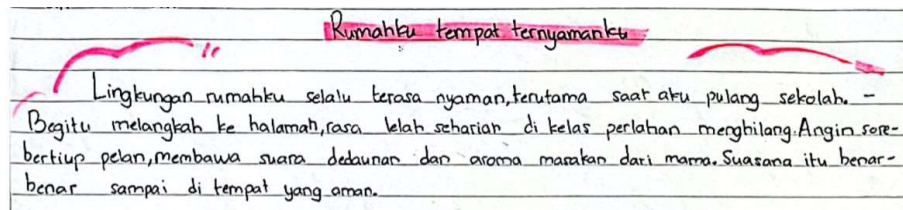 Rumahku tempat ternyamanku
Lingkungan rumahku selalu terasa nyaman, terutama saat aku pulang sekolah. -
Begitu melangkah ke halaman, rasa lelah seharian di kelas perlahan menghilang. Angin sore-
bertiup pelan, membawa suara dedaunan dan aroma masakan dari mama. Suasana itu benar-
benar sampai di tempat yang aman.